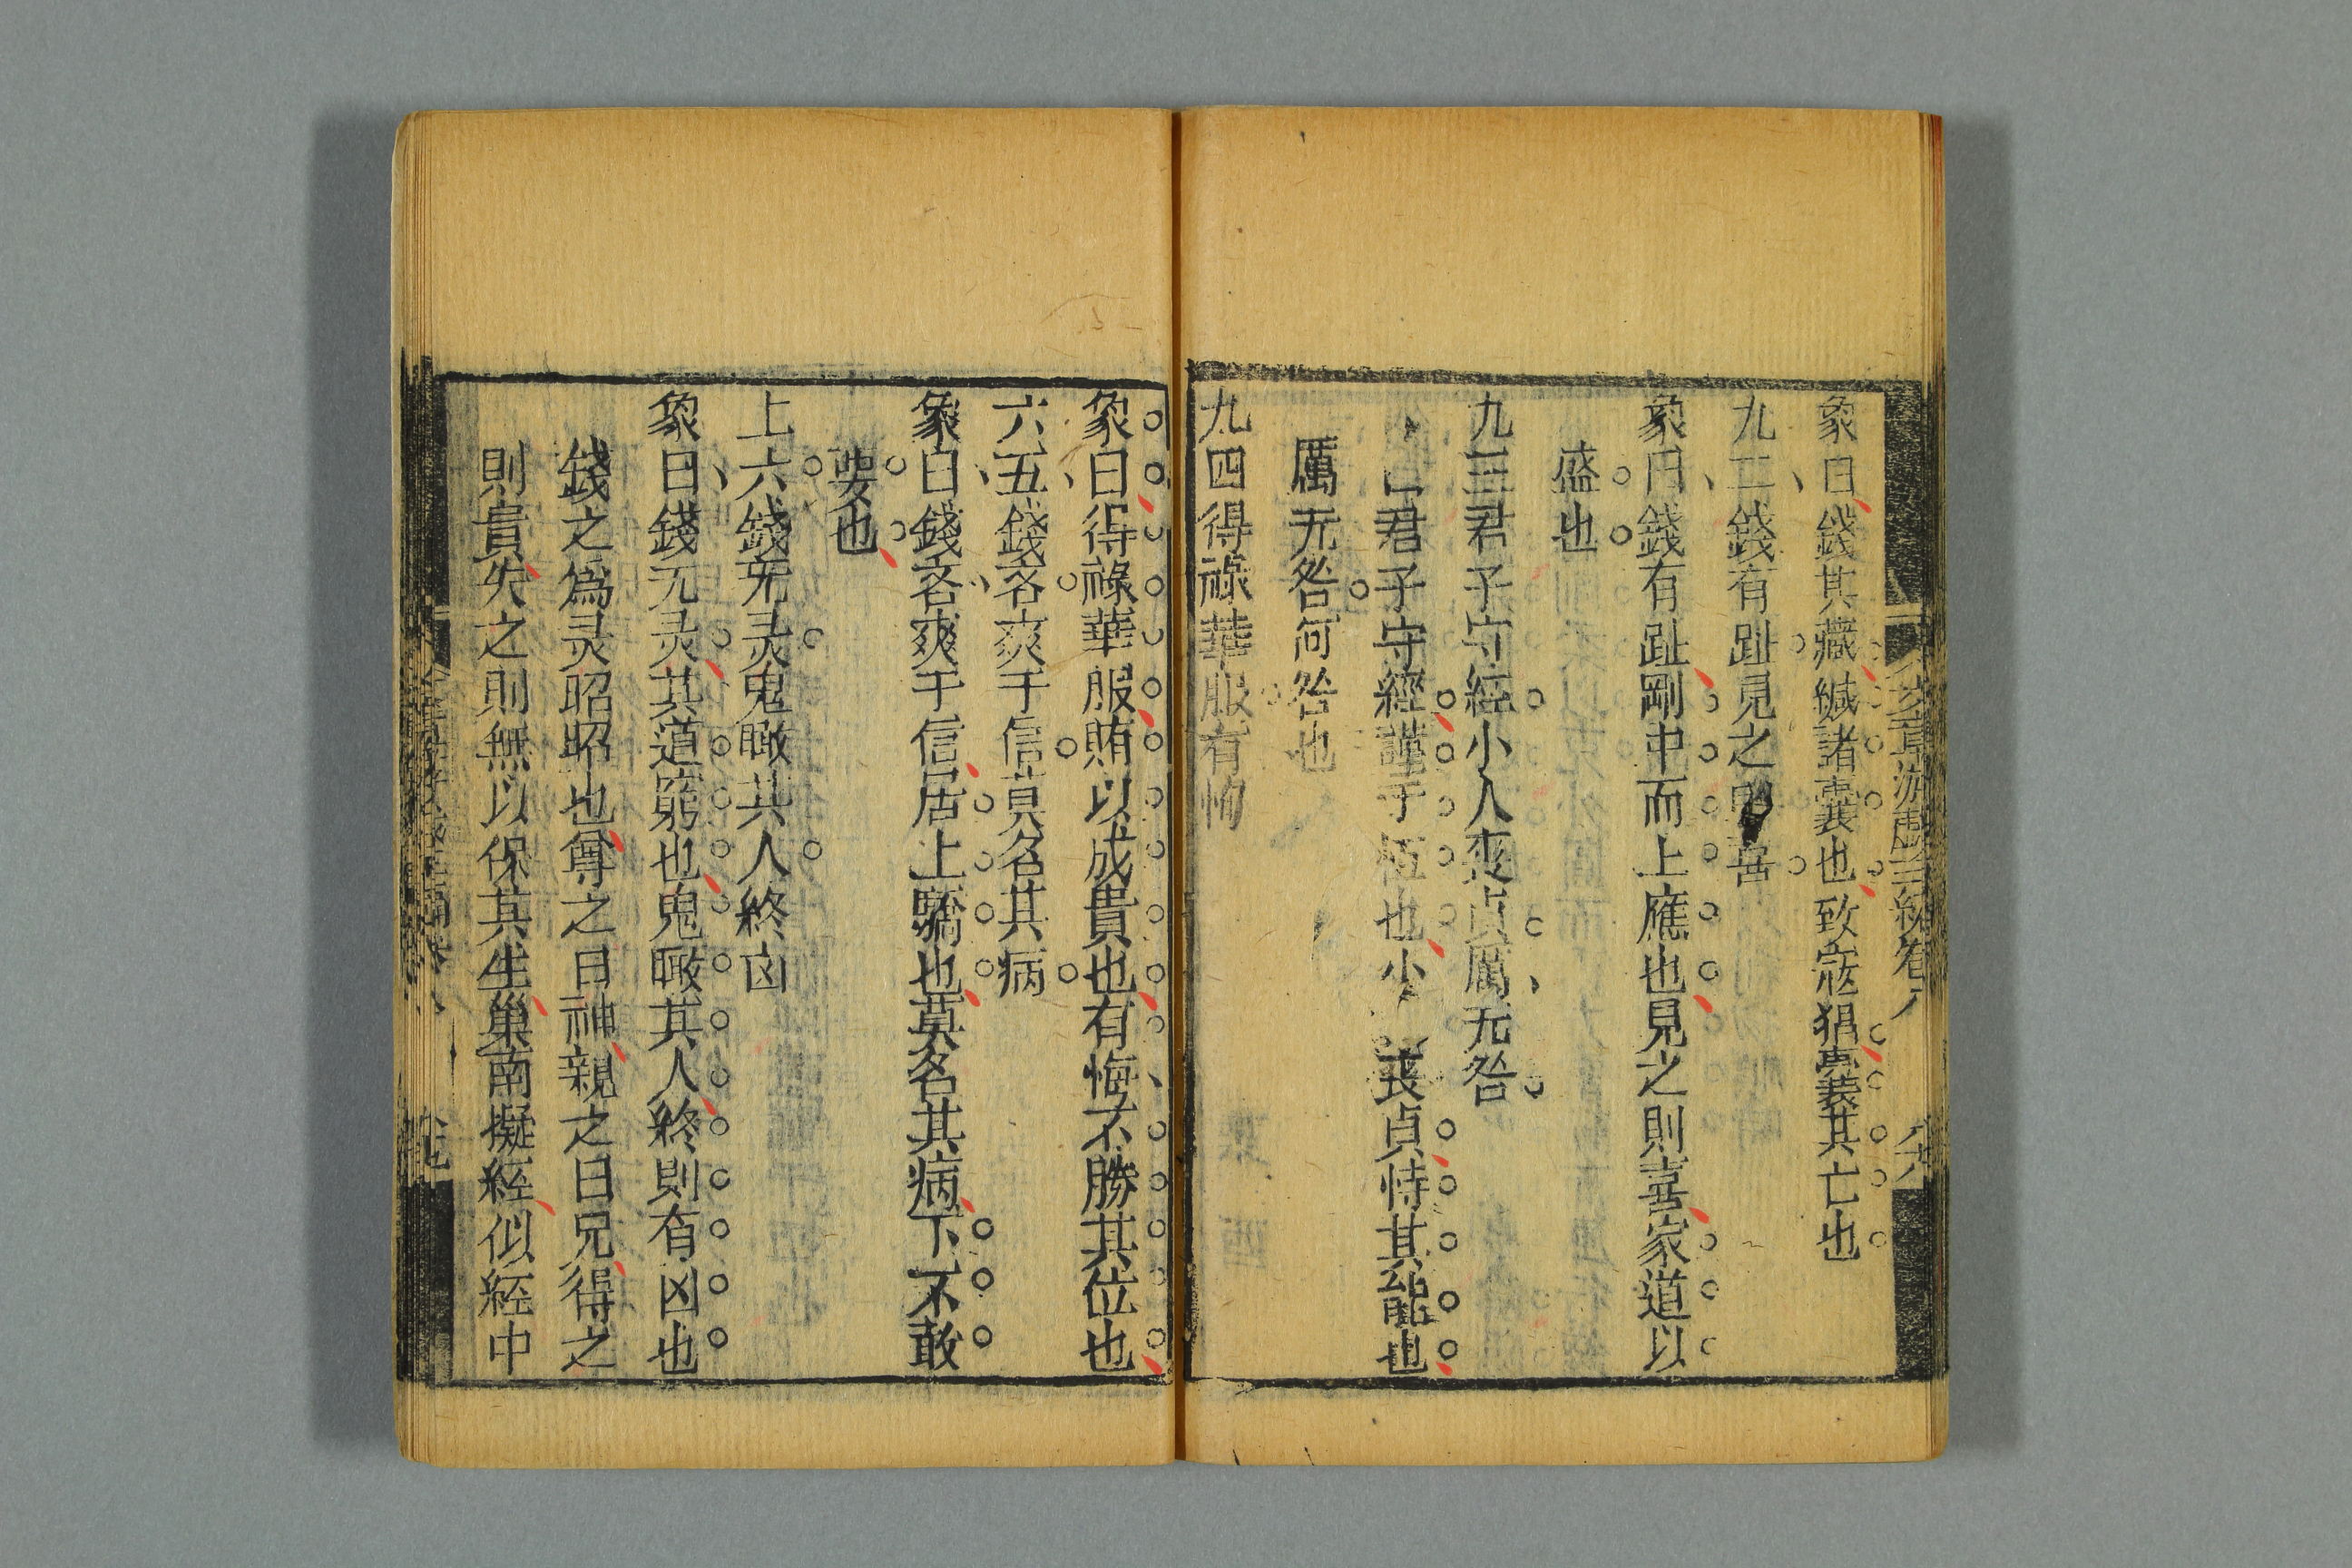 象曰錢其藏緘諸囊也致寇猖裹其亡也
九二錢有趾見之喜
象曰錢有趾剛中而上應也見之則喜家道以
盛也
九三君子守經小人喪貞厲无咎
君子守經謹于恆也小喪貞恃其能也
厲无咎何咎也
九四得祿華服有悔
象曰得祿華服賄以成貴也有悔不勝其位也
六五錢吝爽于信莫名其病
象曰錢吝爽于信居上驕也莫名其病下不敢
嬰也
上六錢无灵鬼瞰其人終凶
象曰錢无灵其道窮也鬼瞰其人終則有凶也
錢之爲灵昭昭也尊之曰神親之曰兄得之
則貴失之則無以保其生巢南擬經似經中